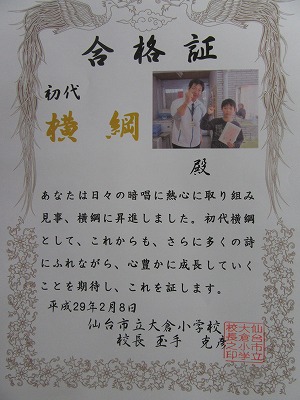 合格証
初代
横綱
殿
あなたは日々の暗唱に熱心に取り組み
見事、横綱に昇進しました。初代横綱
として、これからも、さらに多くの詩
にふれながら、心豊かに成長していく
ことを期待し、これを証します。
平成29年2月8日
仙台市立大倉小学校
校長 玉手 克彦
仙台市立
大倉小学
校長之印